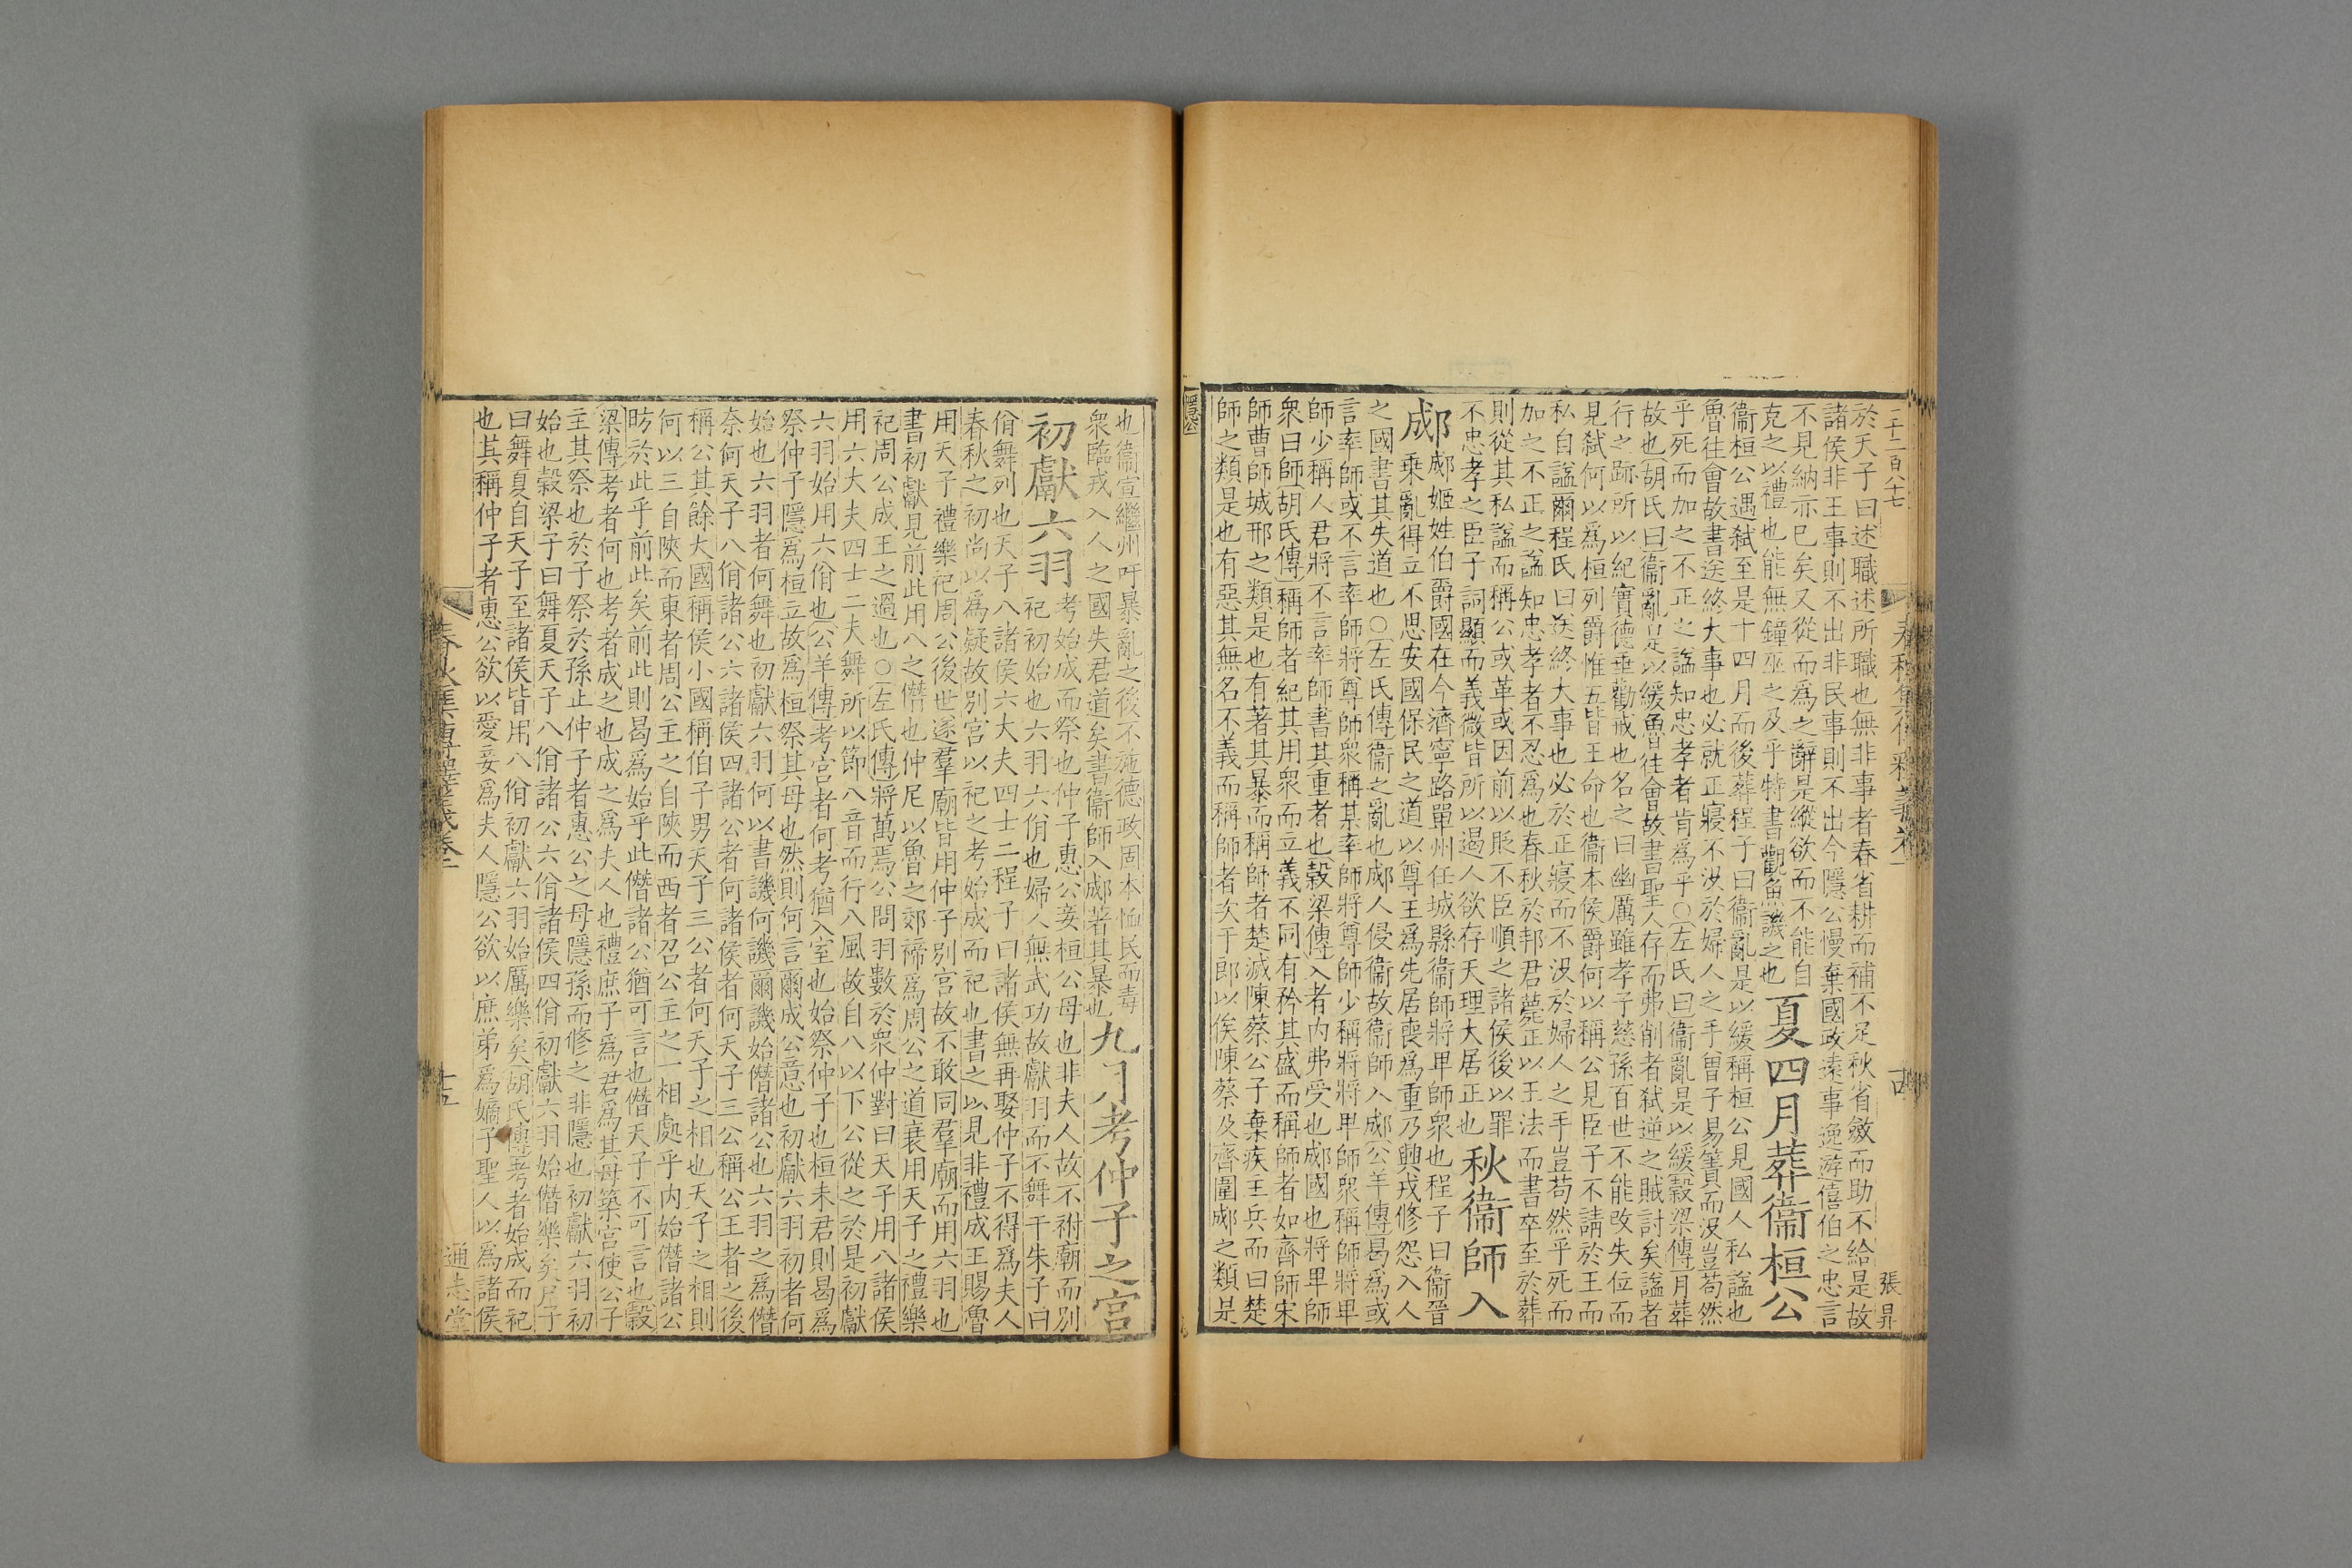 二千二百八十七
張昇
於天子曰述職述所職也無非事者春省耕而補不足秋省斂而助不給是故
諸侯非王事則不出非民事則不出今隱公慢棄國政遠事逸遊僖伯之忠言
不見納亦已矣又從而為之辭是縱欲而不能自
克之以禮也能無鐘巫之及乎特書觀魚譏之也
夏四月葬衞桓公
衞桓公遇弒至是十四月而後葬程子曰衞亂是以緩稱桓公見國人私謚也
魯往會故書送終大事也必就正寢不沒於婦人之手曾子易簀而沒豈苟然
乎死而加之不正之謚知忠孝者肯為乎○左氏曰衞亂是以緩穀梁傳月葬
故也胡氏曰衞亂是以緩魯往會故書聖人存而弗削者弒逆之賊討矣謚者
行之跡所以紀實德垂勸戒也名之曰幽厲雖孝子慈孫百世不能改失位而
見弒何以為桓列爵惟五皆王命也衞本侯爵何以稱公見臣子不請於王而
私自謚爾程氏曰送終大事也必於正寢而不沒於婦人之手豈苟然乎死而
加之不正之謚知忠孝者不忍為也春秋於邦君薨正以王法而書卒至於葬
則從其私謚而稱公或革或因前以貶不臣順之諸侯後以罪
不忠孝之臣子詞顯而義微皆所以遏人欲存天理大居正也
秋衞師入
郕
郕姬姓伯爵國在今濟寧路單州任城縣衞師將卑師衆也程子曰衞晉
乗亂得立不思安國保民之道以尊王為先居喪為重乃興戎修怨入人
之國書其失道也○左氏傳衞之亂也郕人侵衞故衞師入郕公羊傳曷為或
言率師或不言率師將尊師衆稱某率師將尊師少稱將將卑師衆稱師將卑
師少稱人君將不言率師書其重者也穀梁傳入者内弗受也郕國也將卑師
衆曰師胡氏傳稱師者紀其用衆而立義不同有矜其盛而稱師者如齊師宋
師曹師城邢之類是也有著其暴而稱師者楚滅陳蔡公子棄疾主兵而曰楚
師之類是也有惡其無名不義而稱師者次于郎以俟陳蔡及齊圍郕之類是
隱公
也衞宣繼州吁暴亂之後不施德政固本恤民而毒
衆臨戎入人之國失君道矣書衞師入郕著其暴也
九月考仲子之宮
初獻六羽
考始成而祭也仲子惠公妾桓公母也非夫人故不祔廟而別
祀初始也六羽六佾也婦人無武功故獻羽而不舞干朱子曰
佾舞列也天子八諸侯六大夫四士二程子曰諸侯無再娶仲子不得為夫人
春秋之初尚以為疑故別宮以祀之考始成而祀也書之以見非禮成王賜魯
用天子禮樂祀周公後世遂羣廟皆用仲子別宮故不敢同羣廟而用六羽也
書初獻見前此用八之僭也仲尼以魯之郊禘為周公之道衰用天子之禮樂
祀周公成王之過也○左氏傳將萬焉公問羽數於衆仲對曰天子用八諸侯
用六大夫四士二夫舞所以節八音而行八風故自八以下公從之於是初獻
六羽始用六佾也公羊傳考宮者何考猶入室也始祭仲子也桓未君則曷為
祭仲子隱為桓立故為桓祭其母也然則何言爾成公意也初獻六羽初者何
始也六羽者何舞也初獻六羽何以書譏何譏爾譏始僭諸公也六羽之為僭
奈何天子八佾諸公六諸侯四諸公者何諸侯者何天子三公稱公王者之後
稱公其餘大國稱侯小國稱伯子男天子三公者何天子之相也天子之相則
何以三自陝而東者周公主之自陝而西者召公主之一相處乎内始僭諸公
昉於此乎前此矣前此則曷為始乎此僭諸公猶可言也僭天子不可言也穀
梁傳考者何也考者成之也成之為夫人也禮庶子為君為其母築宮使公子
主其祭也於子祭於孫止仲子者惠公之母隱孫而修之非隱也初獻六羽初
始也穀梁子曰舞夏天子八佾諸公六佾諸侯四佾初獻六羽始僭樂矣尸子
曰舞夏自天子至諸侯皆用八佾初獻六羽始厲樂矣胡氏傳考者始成而祀
也其稱仲子者惠公欲以愛妾為夫人隱公欲以庶弟為嫡子聖人以為諸侯
十五
通志堂